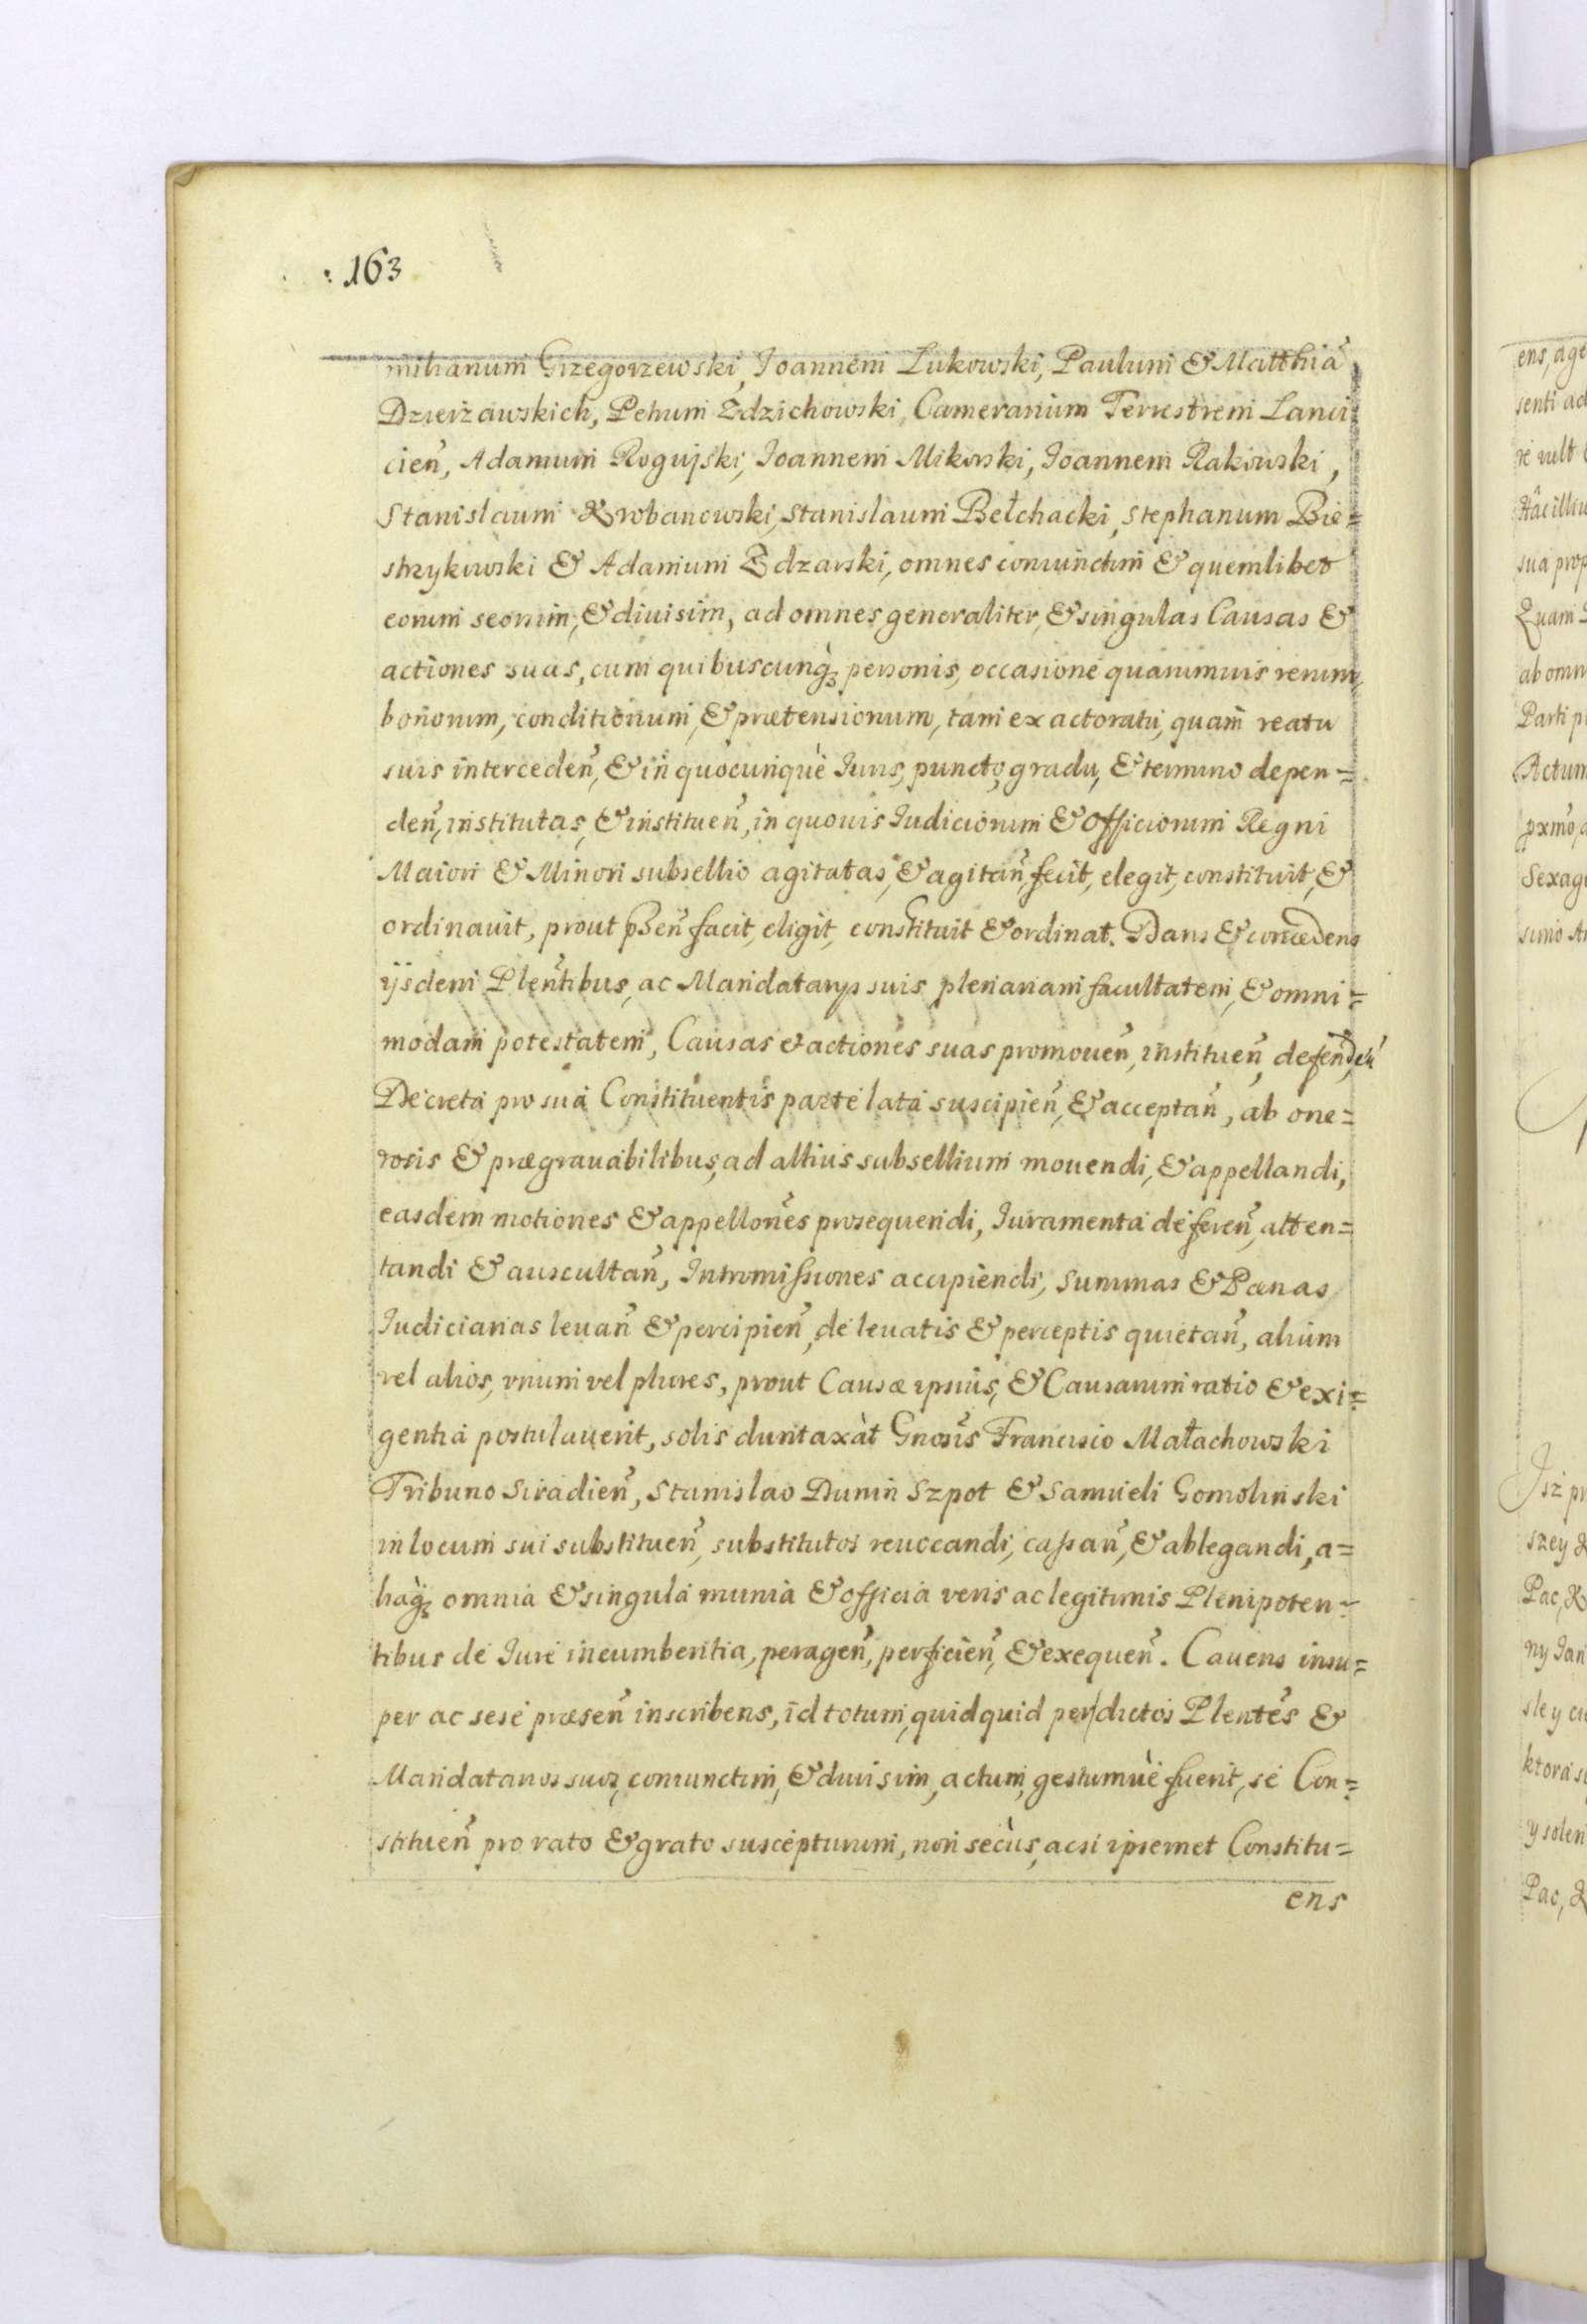 163
milianum Grzegorzewski, Joannem Łukowski, Paulum & Matthiā
Dzierżawskich, Petrum Zdzichowski, Camerarium Terrestrem Lanci
cień, Adamum Rogujski, Joannem Mikorski, Joannem Rakowski,
Stanislaum Krobanowski, Stanislaum Bełchacki, Stephanum Bie=
strzykowski & Adamum Zdzarski, omnes coniunctim & quemlibet
eorum seorsim, & diuisim, ad omnes generaliter, & singulas Causas &
actiones suas, cum quibuscunq; personis, occasione quarumuis rerum,
bonorum, conditionum, & prætensionum, tam ex actoratu, quam reatu
suis interceden̄, & in quocunquè Iuris, puncto, gradu, & termino depen=
den̄, institutas, & instituen̄, in quouis Iudiciorum & Officiorum Regni
Maiori & Minori subsellio agitatas, & agitan̄, fecit, elegit, constituit, &
ordinauit, prout pñsen̄ facit, eligit, constituit & ordinat. Dans & concedens
ijsdem Plen̄tibus, ac Mandatarijs suis plenariam facultatem, & omni=
modam potestatem, Causas et actiones suas promouen̄, instituen̄, defenden̄
Decreta pro sua Constituentis parte lata suscipien̄, & acceptan̄, ab one=
rosis & prægrauabilibus, ad altius subsellium mouendi, & appellandi,
easdem motiones & appellon̄es prosequendi, Iuramenta deferen̄, atten=
tandi & auscultan̄, Intromissiones accipiendi, Summas & Pœnas
Iudiciarias leuan̄ & percipien̄, de leuatis & perceptis quietan̄, alium
vel alios, vnum vel plures, prout Causæ ipsius, & Causarum ratio & exi=
gentia postulauerit, solis duntaxàt Gnosis Francisco Małachowski
Tribuno Siradien̄, Stanislao Dunin Szpot & Samueli Gomoliński
in locum sui substituen̄, substitutos reuocandi, cassan̄, & ablegandi, a=
liaq; omnia & singula munia & officia veris ac legitimis Plenipoten=
tibus de Iure incumbentia, peragen̄, perficien̄, & exequen̄. Cauens insu=
per ac sese præsen̄ inscribens, id totum, quidquid per dictos Plentes &
Mandatarios suos, coniunctim, & diuisim, actum, gestumuè fuerit, se Con=
stituen̄ pro rato & grato suscepturum, non secùs, acsi ipsemet Constitu=
ens
ens, age
senti ad
re vult
sua prop
Quam
ab omn
Parti p
Actum
pxmo, a
Sexag
simo
Isz pr
szey
Pac,
ny Jan
sley
ktora
y solen
Pac,